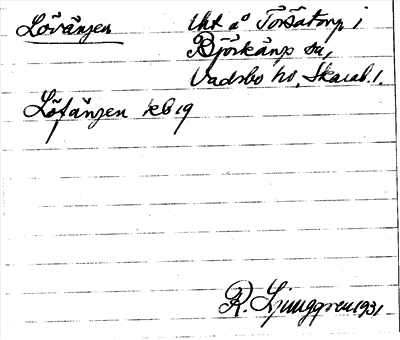 Lövängen
Uht å Torsatorp i
Björkängs sn,
Vadsbo hd, Skarab. l.
Löfängen kb 19
R. Ljunggren 1931